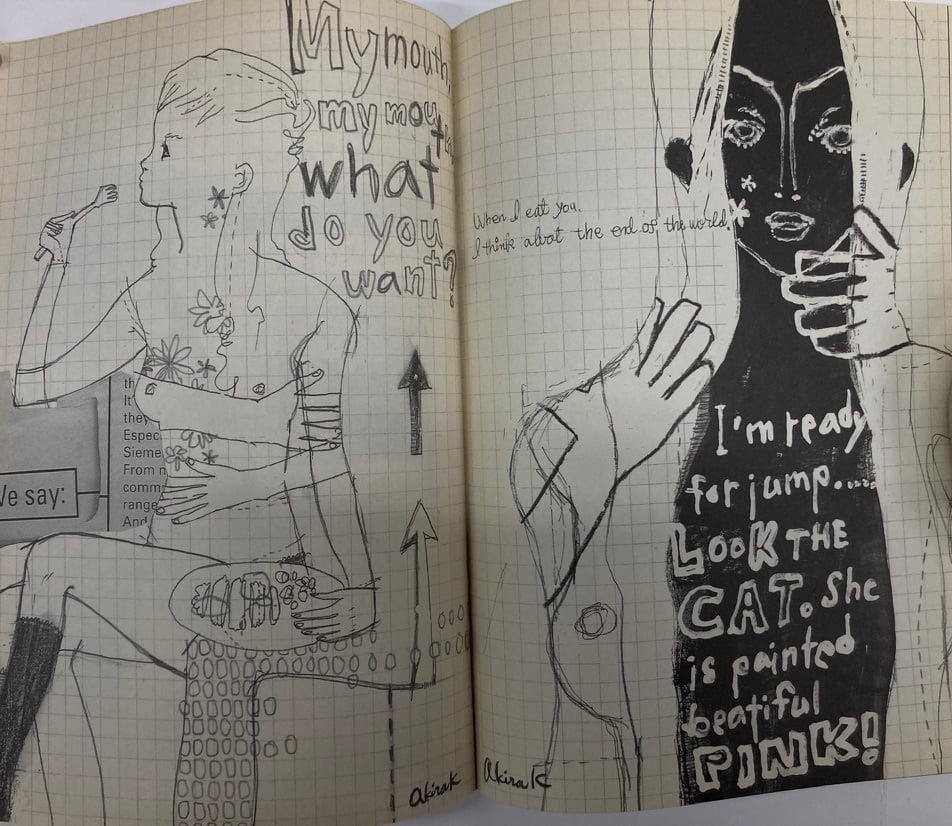 My mouth,
my mouth
what
do you
want?
th
It
they
Espec
Sieme
From n
comm
range
And
We say:
akirak
When I eat you.
I think about the end of the world.
I'm ready
for jump.....
LOOK THE
CAT. She
is painted
beatiful
PINK!
akirak